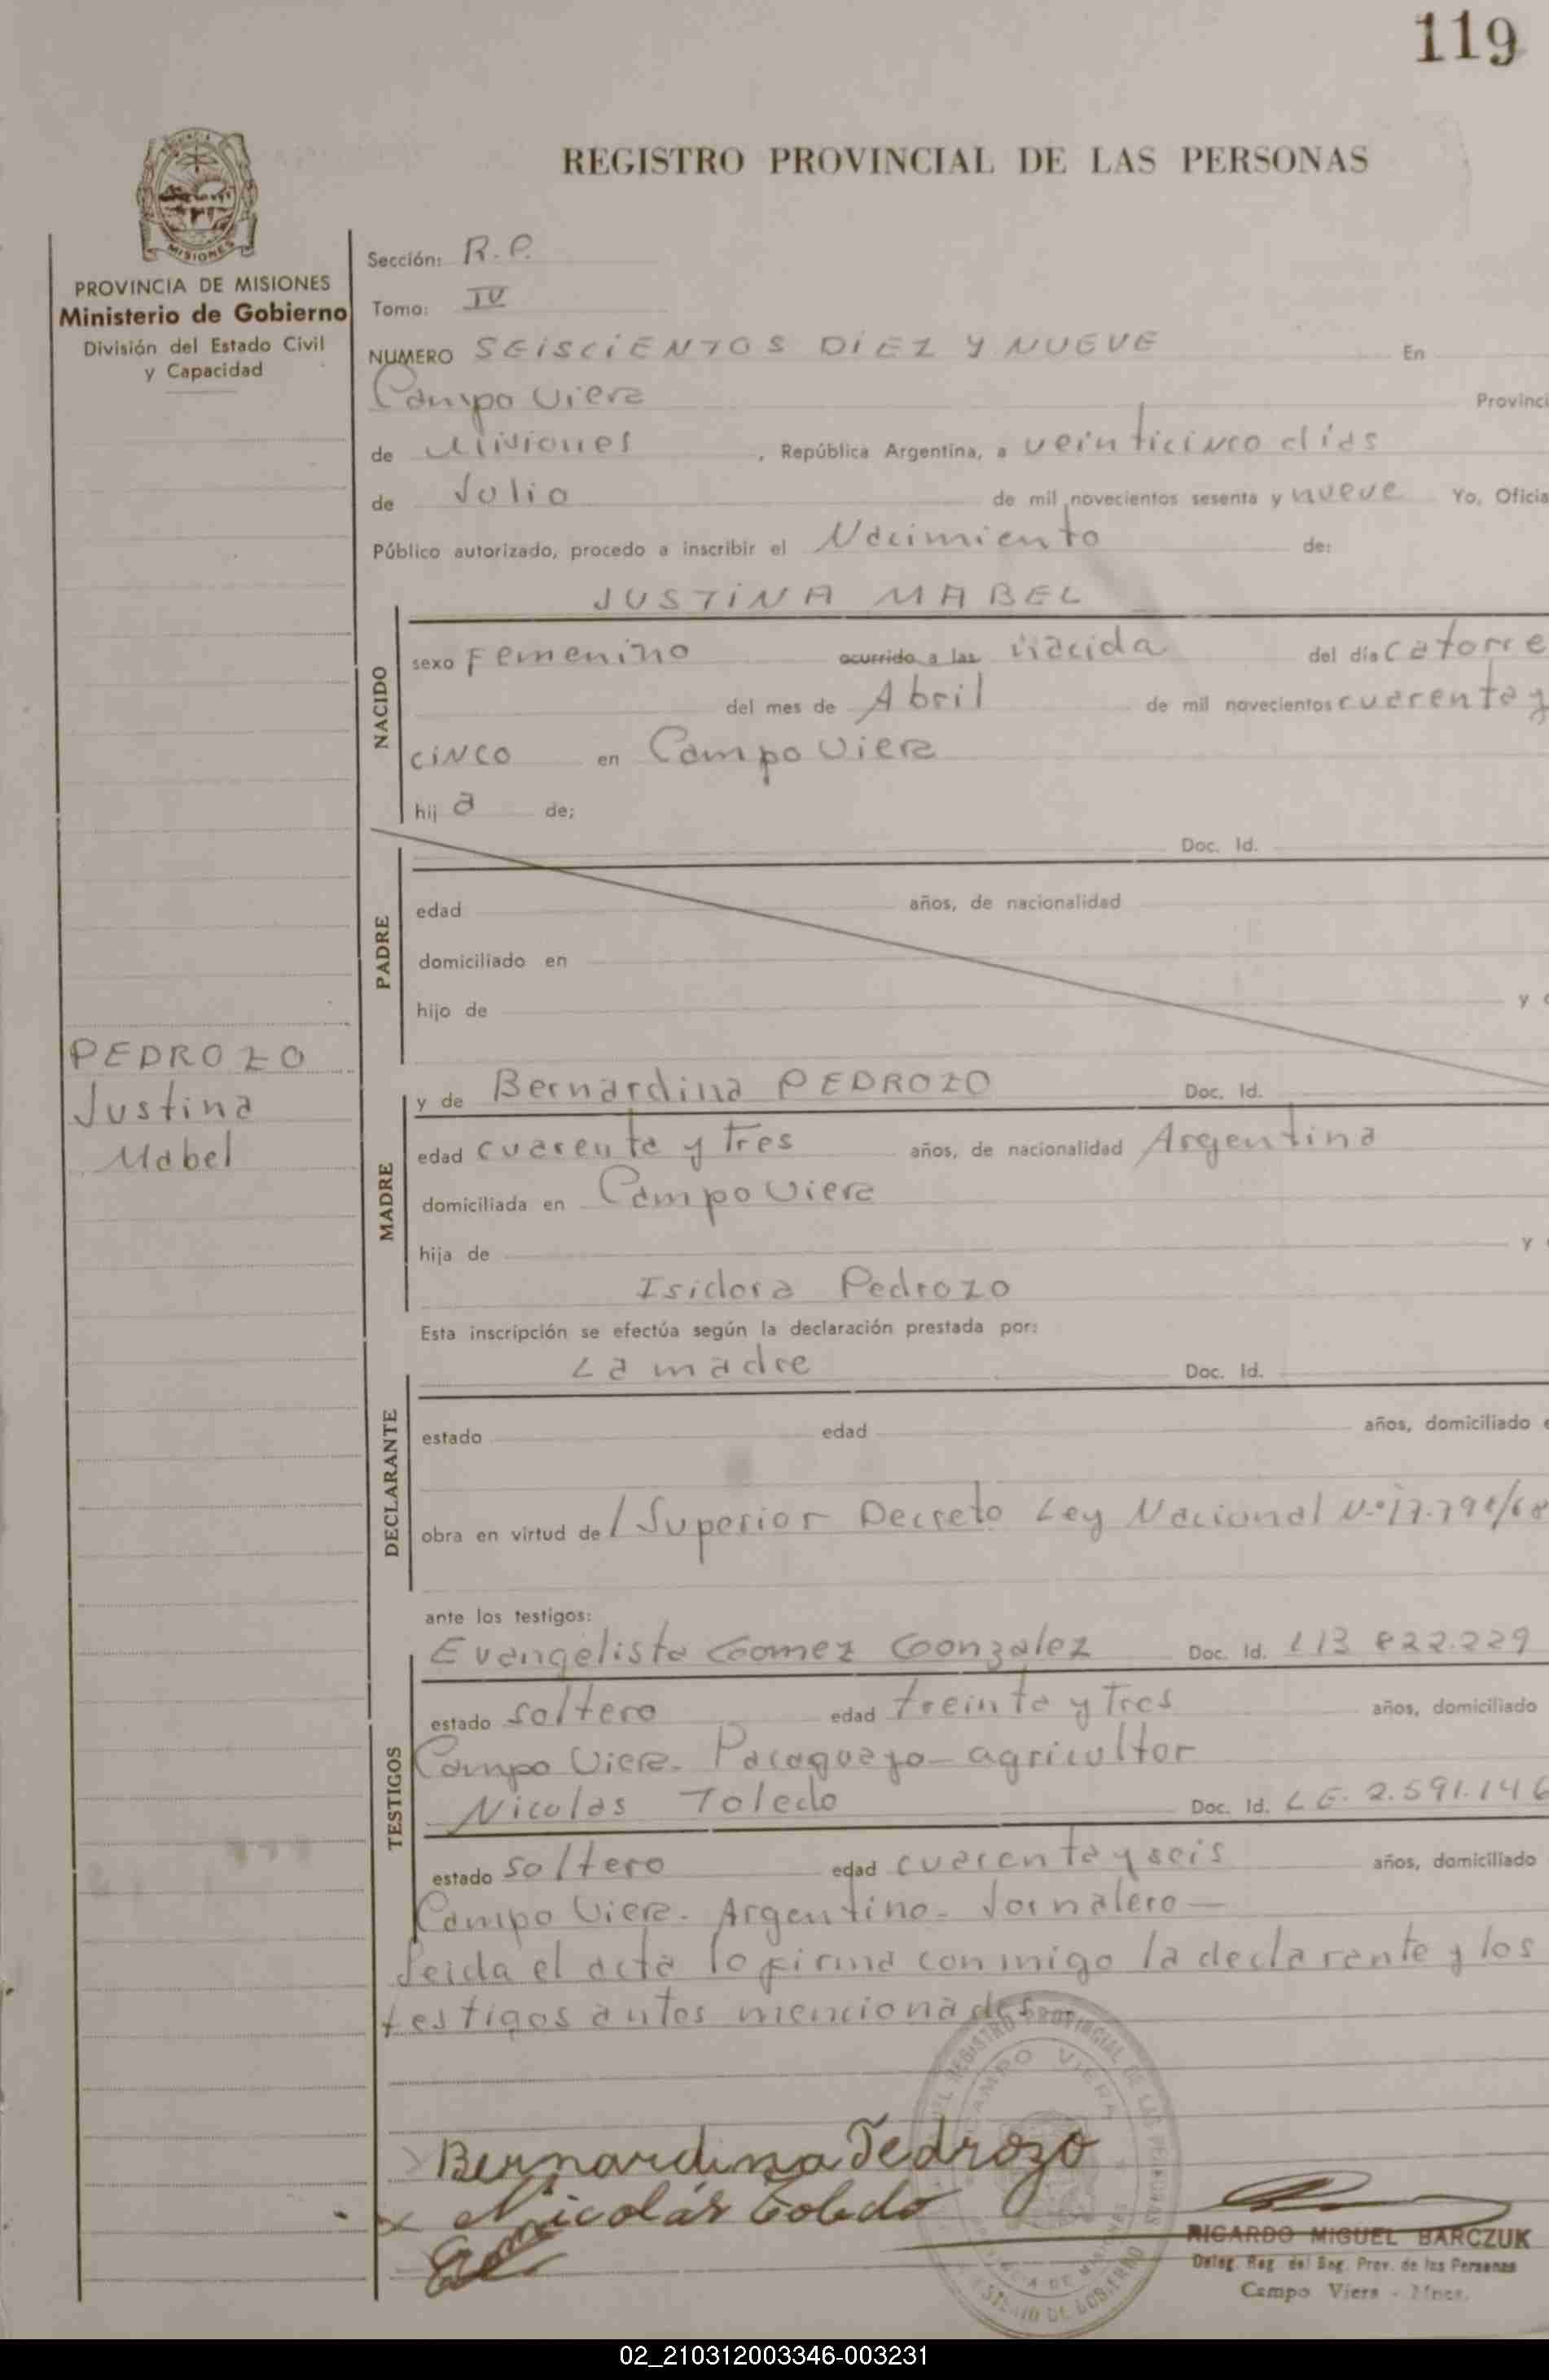 119
REGISTRO PROVINCIAL DE LAS PERSONAS
MISIONES
PROVINCIA DE MISIONES
Ministerio de Gobierno
División del Estado Civil
y Capacidad
Sección: R.P.
Tomo: IV
NUMERO SEISCIENTOS DIEZ Y NUEVE En
Campo Viera Provinci
de Misiones , República Argentina, a veinticinco días
de Julio de mil novecientos sesenta y nueve Yo, Oficia
Público autorizado, procedo a inscribir el Nacimiento de:
JUSTINA MABEL
NACIDO
sexo Femenino ocurrido a las nacida del día catorce
del mes de Abril de mil novecientos cuarenta y
cinco en Campo Viera
hij a de;
PADRE
Doc. Id.
edad años, de nacionalidad
domiciliado en
hijo de y
PEDROZO
Justina
Mabel
MADRE
y de Bernardina PEDROZO Doc. Id.
edad cuarenta y tres años, de nacionalidad Argentina
domiciliada en Campo Viera
hija de y
Isidora Pedrozo
Esta inscripción se efectúa según la declaración prestada por:
DECLARANTE
La madre Doc. Id.
estado edad años, domiciliado e
obra en virtud de / Superior Decreto Ley Nacional
ante los testigos:
TESTIGOS
Evangelista Gomez Gonzalez Doc. Id.
estado soltero edad treinta y tres años, domiciliado
Campo Viera. Paraguayo - agricultor
Nicolas Toledo Doc. Id. L E. 2.591.146
estado soltero edad cuarenta y seis años, domiciliado
Campo Viera. Argentino. Jornalero —
Leida el acta lo firma conmigo la declarante y los
testigos antes mencionados
Bernardina Pedrozo
x Nicolás Toledo
RICARDO MIGUEL BARCZUK
Deleg. Reg. del Reg. Prov. de las Personas
Campo Viera - Mnes.
02_210312003346-003231